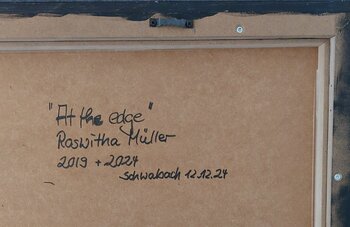 "At the edge"
Roswitha Müller
2019 + 2024
Schwabach 12.12.24